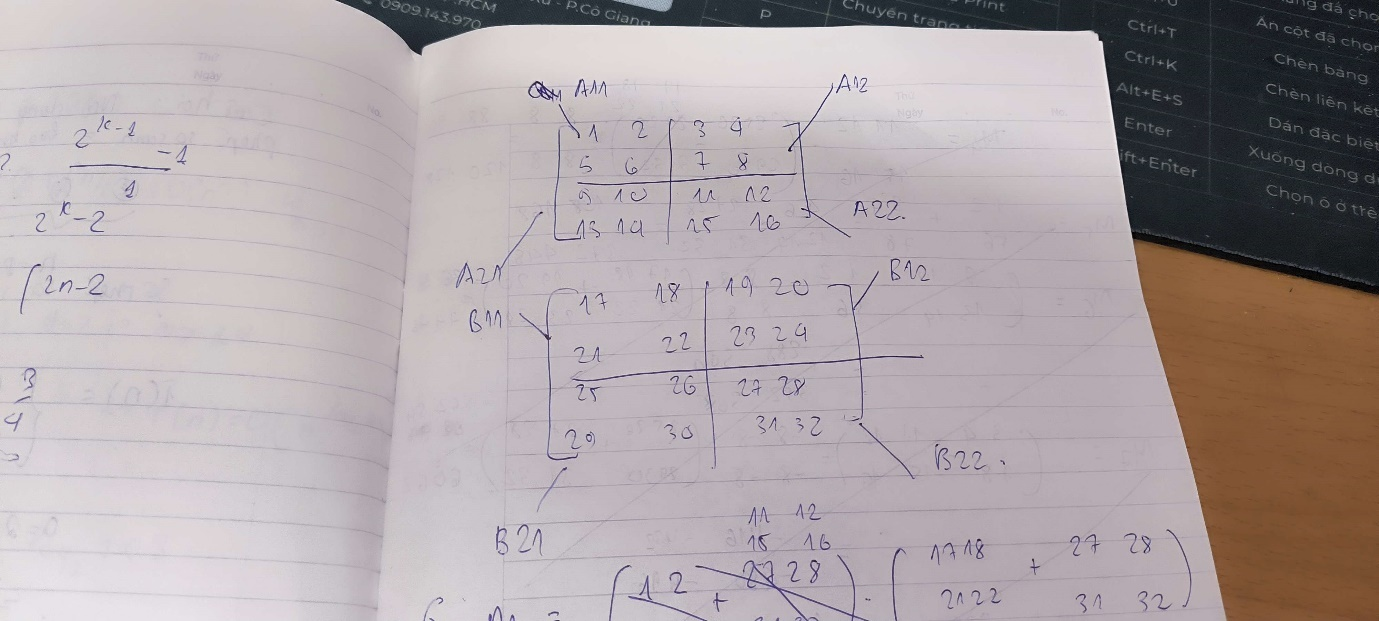 HCM
0909.143.970
P.Cô Giang
P
Print
Chuyển trang
Ctrl+T
Ctrl+K
Alt+E+S
Enter
ift+Enter
Ẩn cột đã chọn
Chèn bảng
Chèn liên kết
Dán đặc biệt
Xuống dòng
Chọn ô ở trê
2^k-1 - 1
1
2^k - 2
2n-2
3
4
A11
A12
1 2 3 4
5 6 7 8
9 10 11 12
13 14 15 16
A22.
A21
B12
B11
17 18 19 20
21 22 23 24
25 26 27 28
29 30 31 32
B22.
B21
11 12
15 16
1 2 + 27 28 . 17 18 + 27 28
21 22 31 32